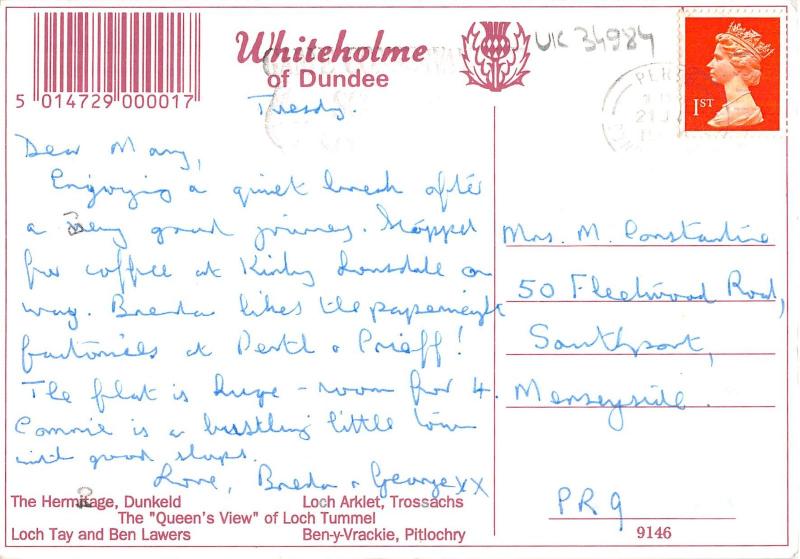 Whiteholme
of Dundee
UK 34984
1ST
5 014729 000017
Tuesday.
Dear Mary,
Enjoying a quiet break after
a very good journey. Stopped
for coffee at Kirby Lonsdale on
way. Breda likes the paperweight
factories at Perth + Crieff!
The flat is huge - room for 4.
Comrie is a bustling little town
with good shops.
Love, Breda + George xx
Mrs. M. Constantine
50 Fleetwood Road,
Southport,
Merseyside.
PR9
The Hermitage, Dunkeld
Loch Arklet, Trossachs
The "Queen's View" of Loch Tummel
Loch Tay and Ben Lawers
Ben-y-Vrackie, Pitlochry
9146